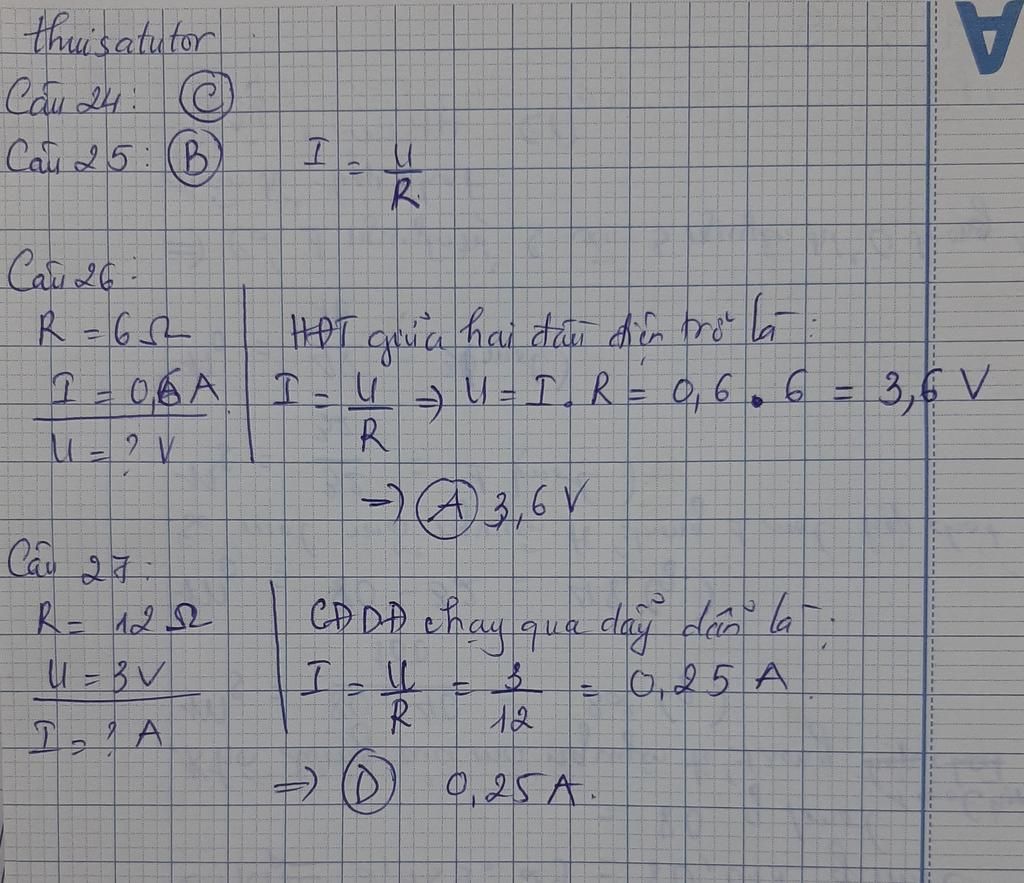 thuisatutor
Câu 24: C
Câu 25: B I = U/R
Câu 26:
R = 6 Ω
I = 0,6 A
U = ? V
HĐT giữa hai đầu điện trở là:
I = U/R ⇒ U = I . R = 0,6 . 6 = 3,6 V
⇒ A 3,6 V
Câu 27:
R = 12 Ω
U = 3V
I = ? A
CĐDĐ chạy qua dây dẫn là:
I = U/R = 3/12 = 0,25 A
⇒ D 0,25 A.
A